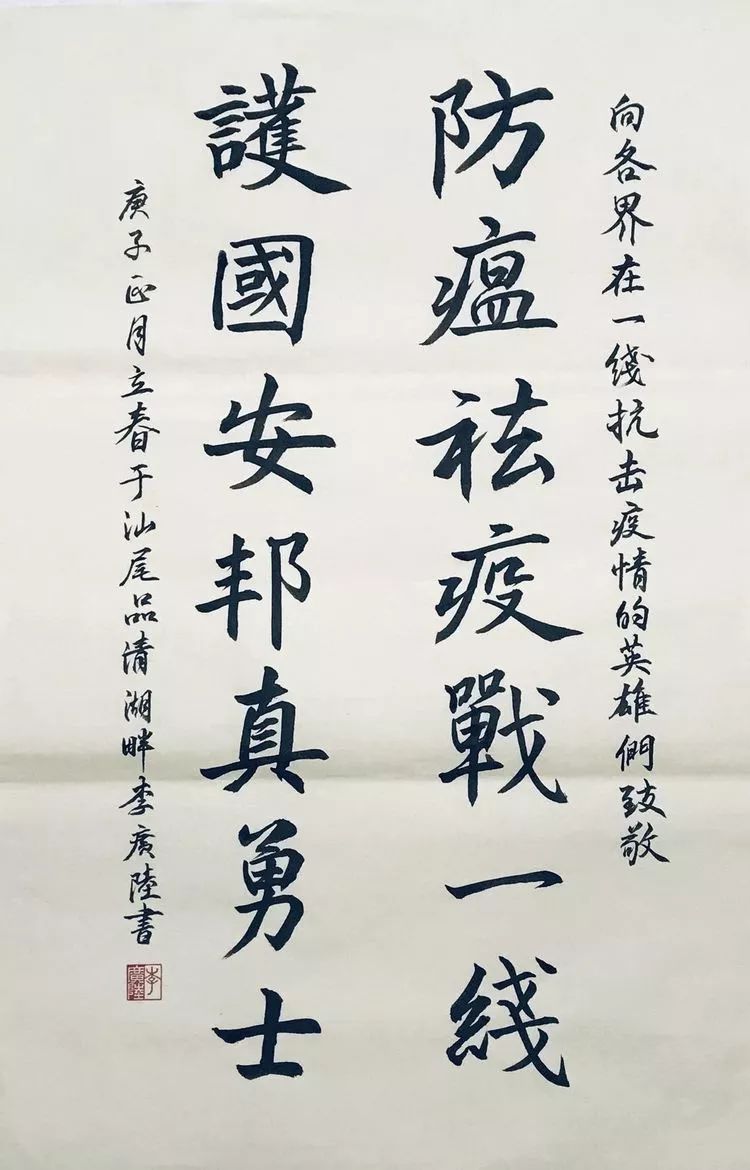 向各界在一綫抗击疫情的英雄們致敬
防瘟祛疫戰一綫
護國安邦真勇士
庚子正月立春于汕尾品清湖畔李廣陸書
李廣陸